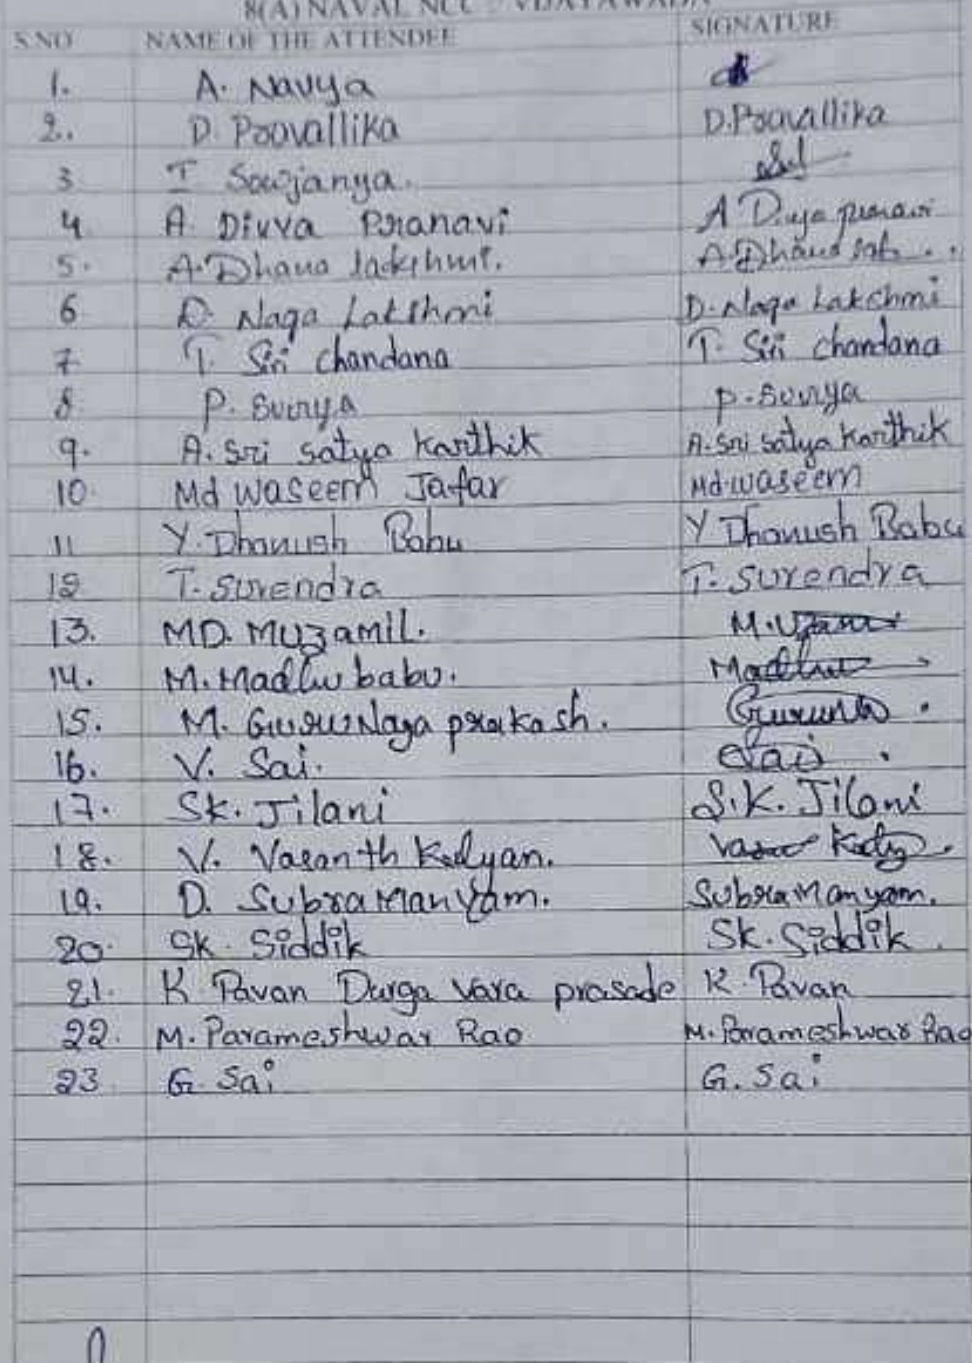 8(A) NAVAL NCC - VIJAYAWADA
S.NO NAME OF THE ATTENDEE SIGNATURE
1. A. Navya
2. D. Pravallika D. Pravallika
3 T Sowjanya.
4 A Divya Pranavi A Divya pranavi
5. A. Dhana lakshmi. A. Dhana
6 D. Naga Lakshmi D. Naga Lakshmi
7 T. Siri chandana T. Siri chandana
8 P. Surya P. Surya
9. A. Sri satya Karthik A. Sri satya Karthik
10. Md Waseem Jafar Md waseem
11 Y. Dhanush Babu Y Dhanush Babu
12 T. Surendra T. Surendra
13. MD. MUZAMIL.
14. M. Madhu babu. Madhu
15. M. Guru Naga prakash.
16. V. Sai. Sai.
17. Sk. Jilani S.K. Jilani
18. V. Vasanth Kalyan.
19. D. Subramanyam. Subramanyam.
20. Sk. Siddik Sk. Siddik.
21. K Pavan Durga Vara prasade K. Pavan
22. M. Parameshwar Rao M. Parameshwar Rao
23 G. Sai G. Sai